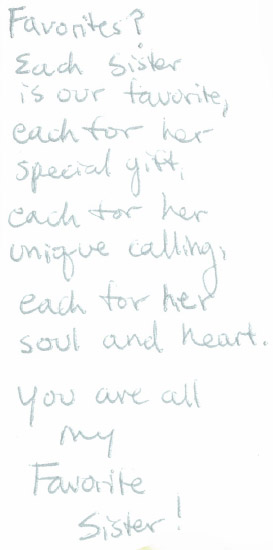 Favorites?
Each Sister
is our favorite,
each for her
special gift,
each for her
unique calling,
each for her
soul and heart.
You are all
my
Favorite
Sister!